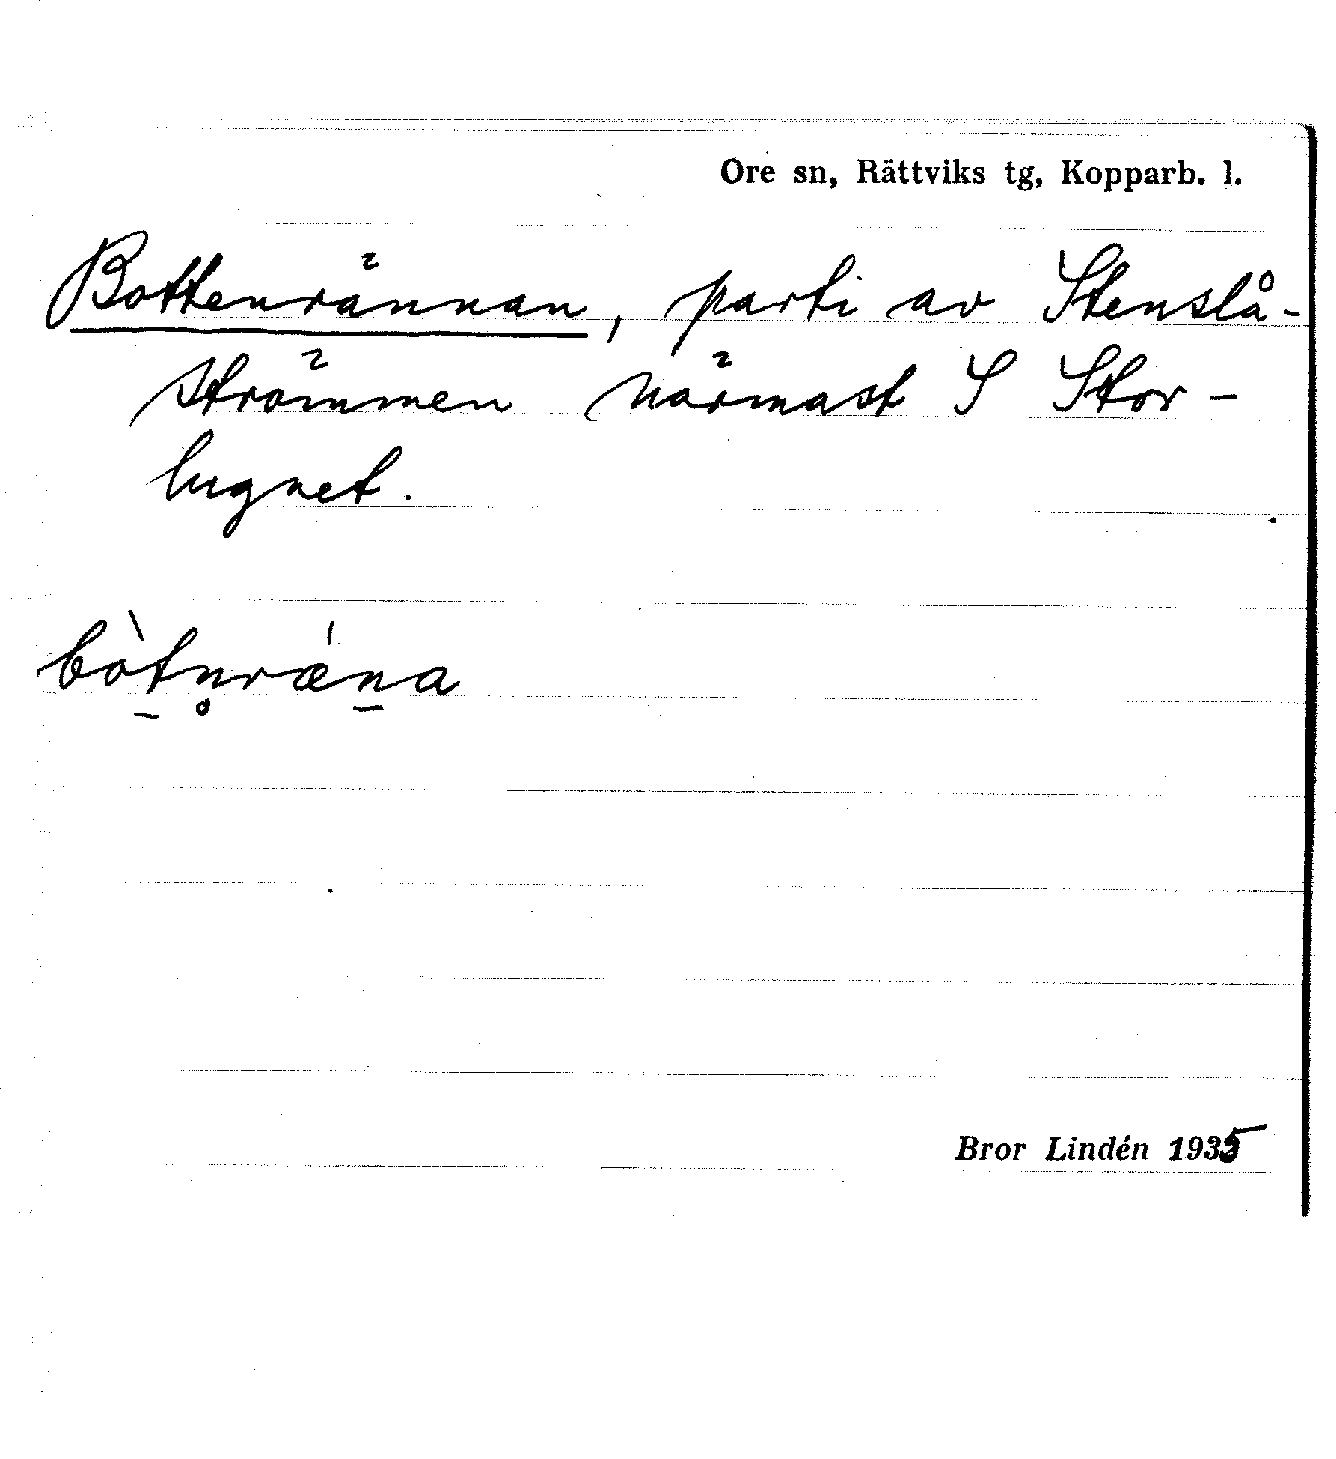 Ore sn, Rättviks tg, Kopparb. l.
Bottenrännan, parti av Stenslå-
strömmen närmast S Stor-
lugnet.
bòt̠n̥rǽn̠a
Bror Lindén 1935